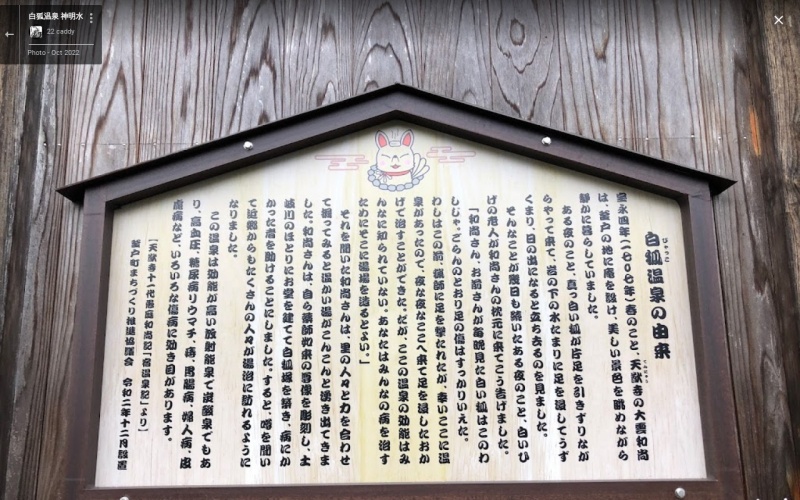 白狐温泉 神明水
22 caddy
Photo - Oct 2022
白狐温泉の由来
宝永四年(一七〇七年)春のこと、天猷寺の大雲和尚
は、釜戸の地に庵を設け、美しい景色を眺めながら
静かに暮らしていました。
ある夜のこと、真っ白い狐が片足を引きずりなが
らやって来て、岩の下の水たまりに足を浸してうず
くまり、日の出になると立ち去るのを見ました。
そんなことが幾日も続いたある夜のこと、白いひ
げの老人が和尚さんの枕元に来てこう告げました。
「和尚さん、お前さんが毎晩見た白い狐はこのわ
しじゃ。ごらんのとおり足の傷はすっかりいえた。
わしはこの前、猟師に足を撃たれたが、幸いここに温
泉があったので、夜な夜なここへ来て足を浸したおか
げで治すことができた。だが、ここの温泉の効能はみ
んなに知られていない。あなたはみんなの病を治す
ためにそこに湯場を造るとよい。」
それを聞いた和尚さんは、里の人々と力を合わせ
て掘ってみると温かい湯がこんこんと湧き出てきま
した。和尚さんは、自ら薬師如来の尊像を彫刻し、土
岐川のほとりにお堂を建てて白狐塚を築き、病にか
かった者を助けることにしました。すると、噂を聞い
て近郷からもたくさんの人々が湯治に訪れるように
なりました。
この温泉は効能が高い放射能泉で炭酸泉でもあ
り、高血圧、糖尿病、リウマチ、痔、胃腸病、婦人病、皮
膚病など、いろいろな傷病に効き目があります。
【天猷寺十代愚庭和尚記「宿温泉記」より】
釜戸町まちづくり推進協議会 令和二年十二月設置